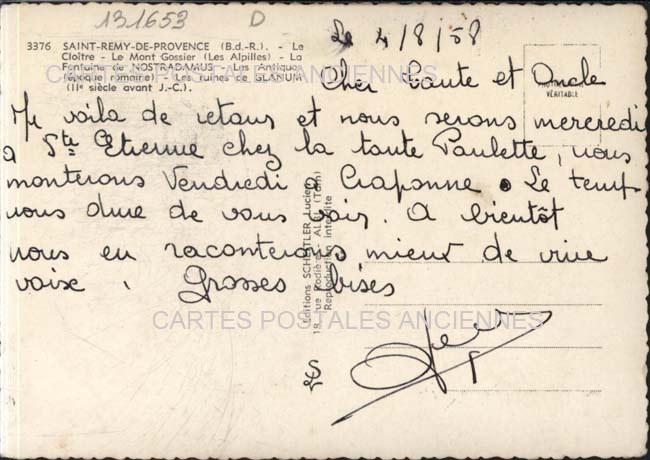 131653 D
3376 SAINT-REMY-DE-PROVENCE (B.d.-R.). - Le
Cloître - Le Mont Gossier (Les Alpilles) - La
Fontaine de NOSTRADAMUS - Les Antiques
(époque romaine) - Les ruines de GLANUM
(IIe siècle avant J.-C.).
CARTES POSTALES ANCIENNES
VÉRITABLE
Le 4/8/58
Cher Tante et Oncle
voila de retour et nous serons mercredi
a Ste Etienne chez la tante Paulette, nous
monterons Vendredi a Craponne. Le temp
nous dure de vous voir. A bientôt
nous en raconterons mieux de vive
voix. Grosses bises
Editions SCHEITLER Lucien
18, rue Rodière - ALBI (Tarn)
Reproduction interdite
CARTES POSTALES ANCIENNES